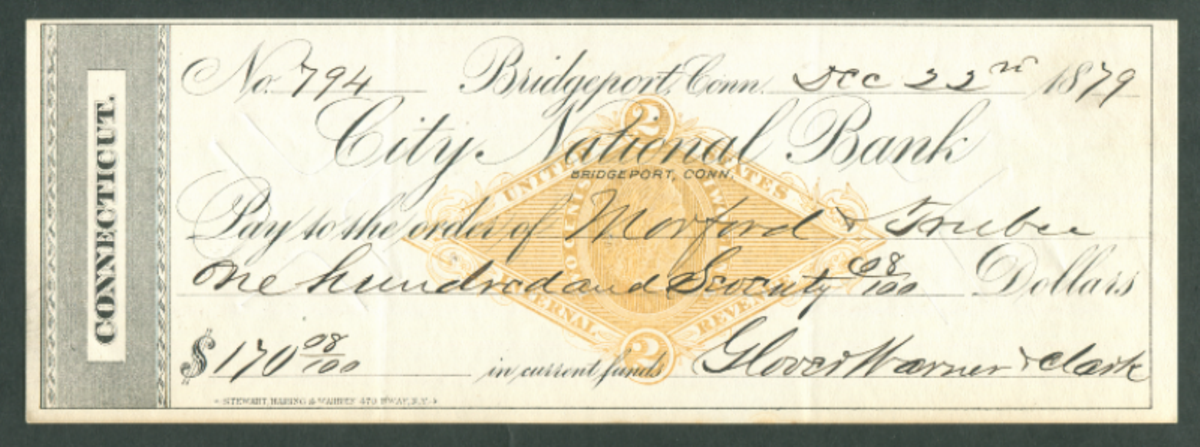 CONNECTICUT.
No. 794 Bridgeport, Conn. Dec 22nd 1879
City National Bank
BRIDGEPORT, CONN.
Pay to the order of Morford & Trubee
One hundred and Seventy 08/100 Dollars
$170 08/100 in current funds Glover Warner & Clark
STEWART, WARREN 470 B'WAY, N.Y.
2
UNITED STATES
INTERNAL REVENUE
2